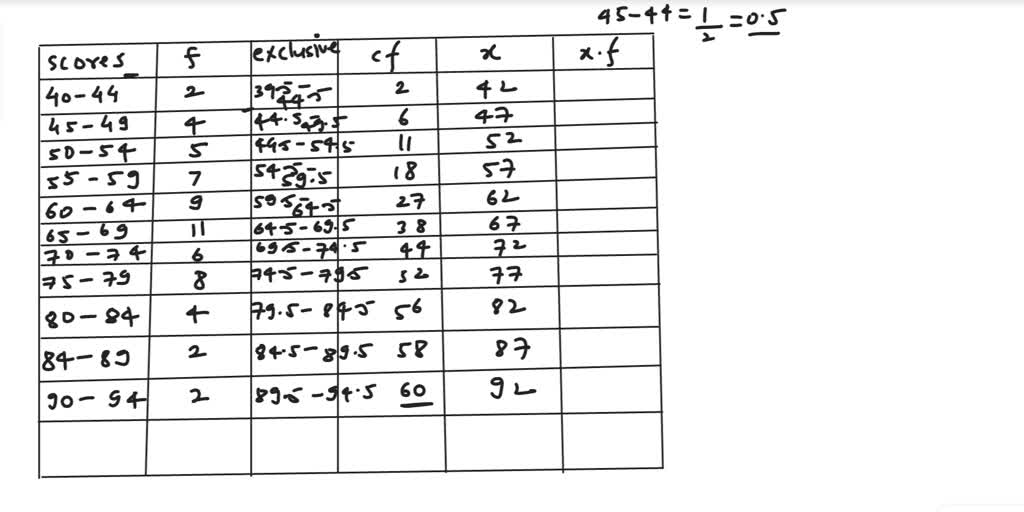 45-44 = 1/2 = 0.5
scores f exclusive cf x x.f
40-44 2 39.5-44.5 2 42
45-49 4 44.5-49.5 6 47
50-54 5 49.5-54.5 11 52
55-59 7 54.5-59.5 18 57
60-64 9 59.5-64.5 27 62
65-69 11 64.5-69.5 38 67
70-74 6 69.5-74.5 44 72
75-79 8 74.5-79.5 52 77
80-84 4 79.5-84.5 56 82
84-89 2 84.5-89.5 58 87
90-94 2 89.5-94.5 60 92